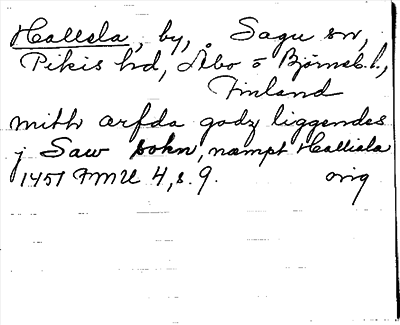 Hallela, by, Sagu sn,
Pikis hd, Åbo o Björneb. l.,
Finland
mith arfda godz liggendes
j Saw sokn, næmpt Halliala
1451 FMU 4, s. 9. orig